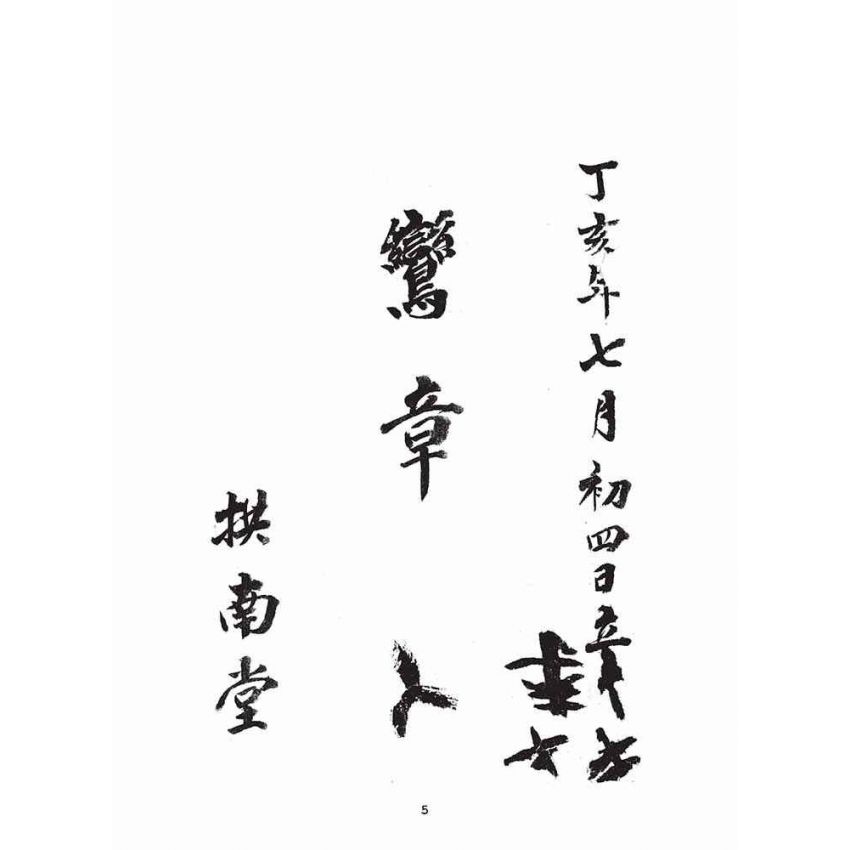 丁亥年七月初四日
鸞章
拱南堂
5